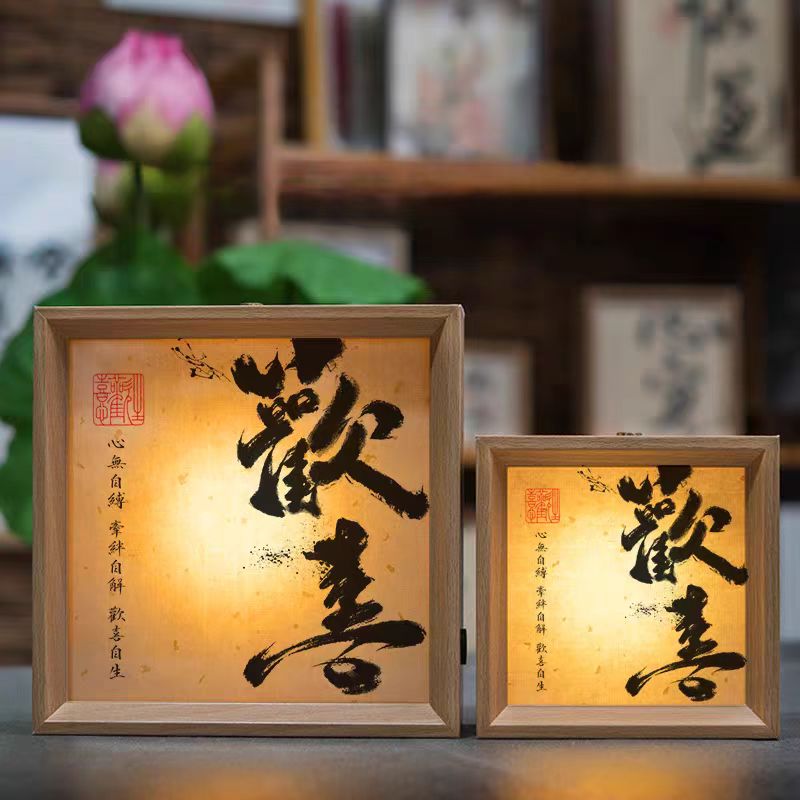 歡喜
心無自縛 牽絆自解 歡喜自生
歡喜
心無自縛 牽絆自解 歡喜自生